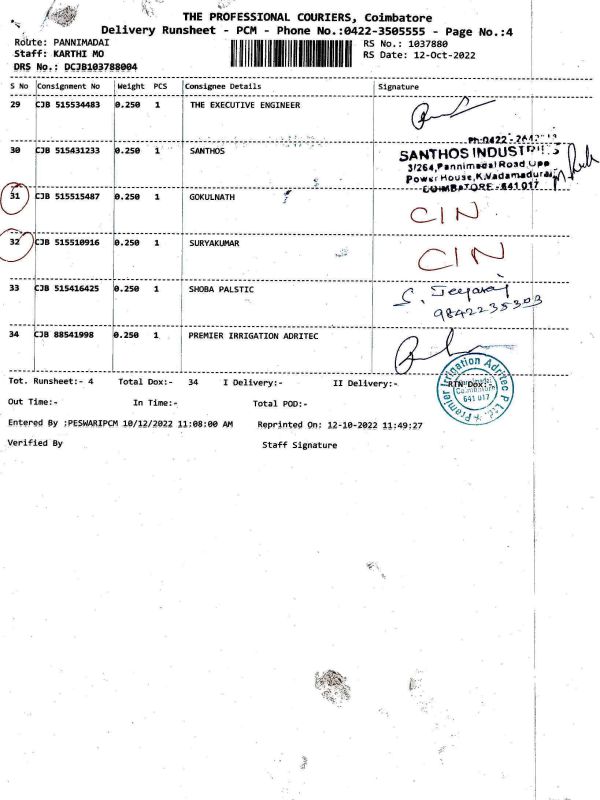 THE PROFESSIONAL COURIERS, Coimbatore
Delivery Runsheet - PCM - Phone No.:0422-3505555 - Page No.:4
Route: PANNIMADAI
Staff: KARTHI MO
DRS No.: DCJB103788004
RS No.: 1037880
RS Date: 12-Oct-2022
S No Consignment No Weight PCS Consignee Details Signature
29 CJB 515534483 0.250 1 THE EXECUTIVE ENGINEER
30 CJB 515431233 0.250 1 SANTHOS
SANTHOS INDUSTRIES
3/264, Pannimadai Road,
Power House, K.Vadamadurai,
COIMBATORE - 641 017
31 CJB 515515487 0.250 1 GOKULNATH CIN
32 CJB 515510916 0.250 1 SURYAKUMAR CIN
33 CJB 515416425 0.250 1 SHOBA PALSTIC S. Jeyaraj
9842235303
34 CJB 88541998 0.250 1 PREMIER IRRIGATION ADRITEC
Premier Irrigation Adritec P Ltd.
Coimbatore
641 017
Tot. Runsheet:- 4 Total Dox:- 34 I Delivery:- II Delivery:- RTN Dox:-
Out Time:- In Time:- Total POD:-
Entered By :PESWARIPCM 10/12/2022 11:08:00 AM Reprinted On: 12-10-2022 11:49:27
Verified By Staff Signature